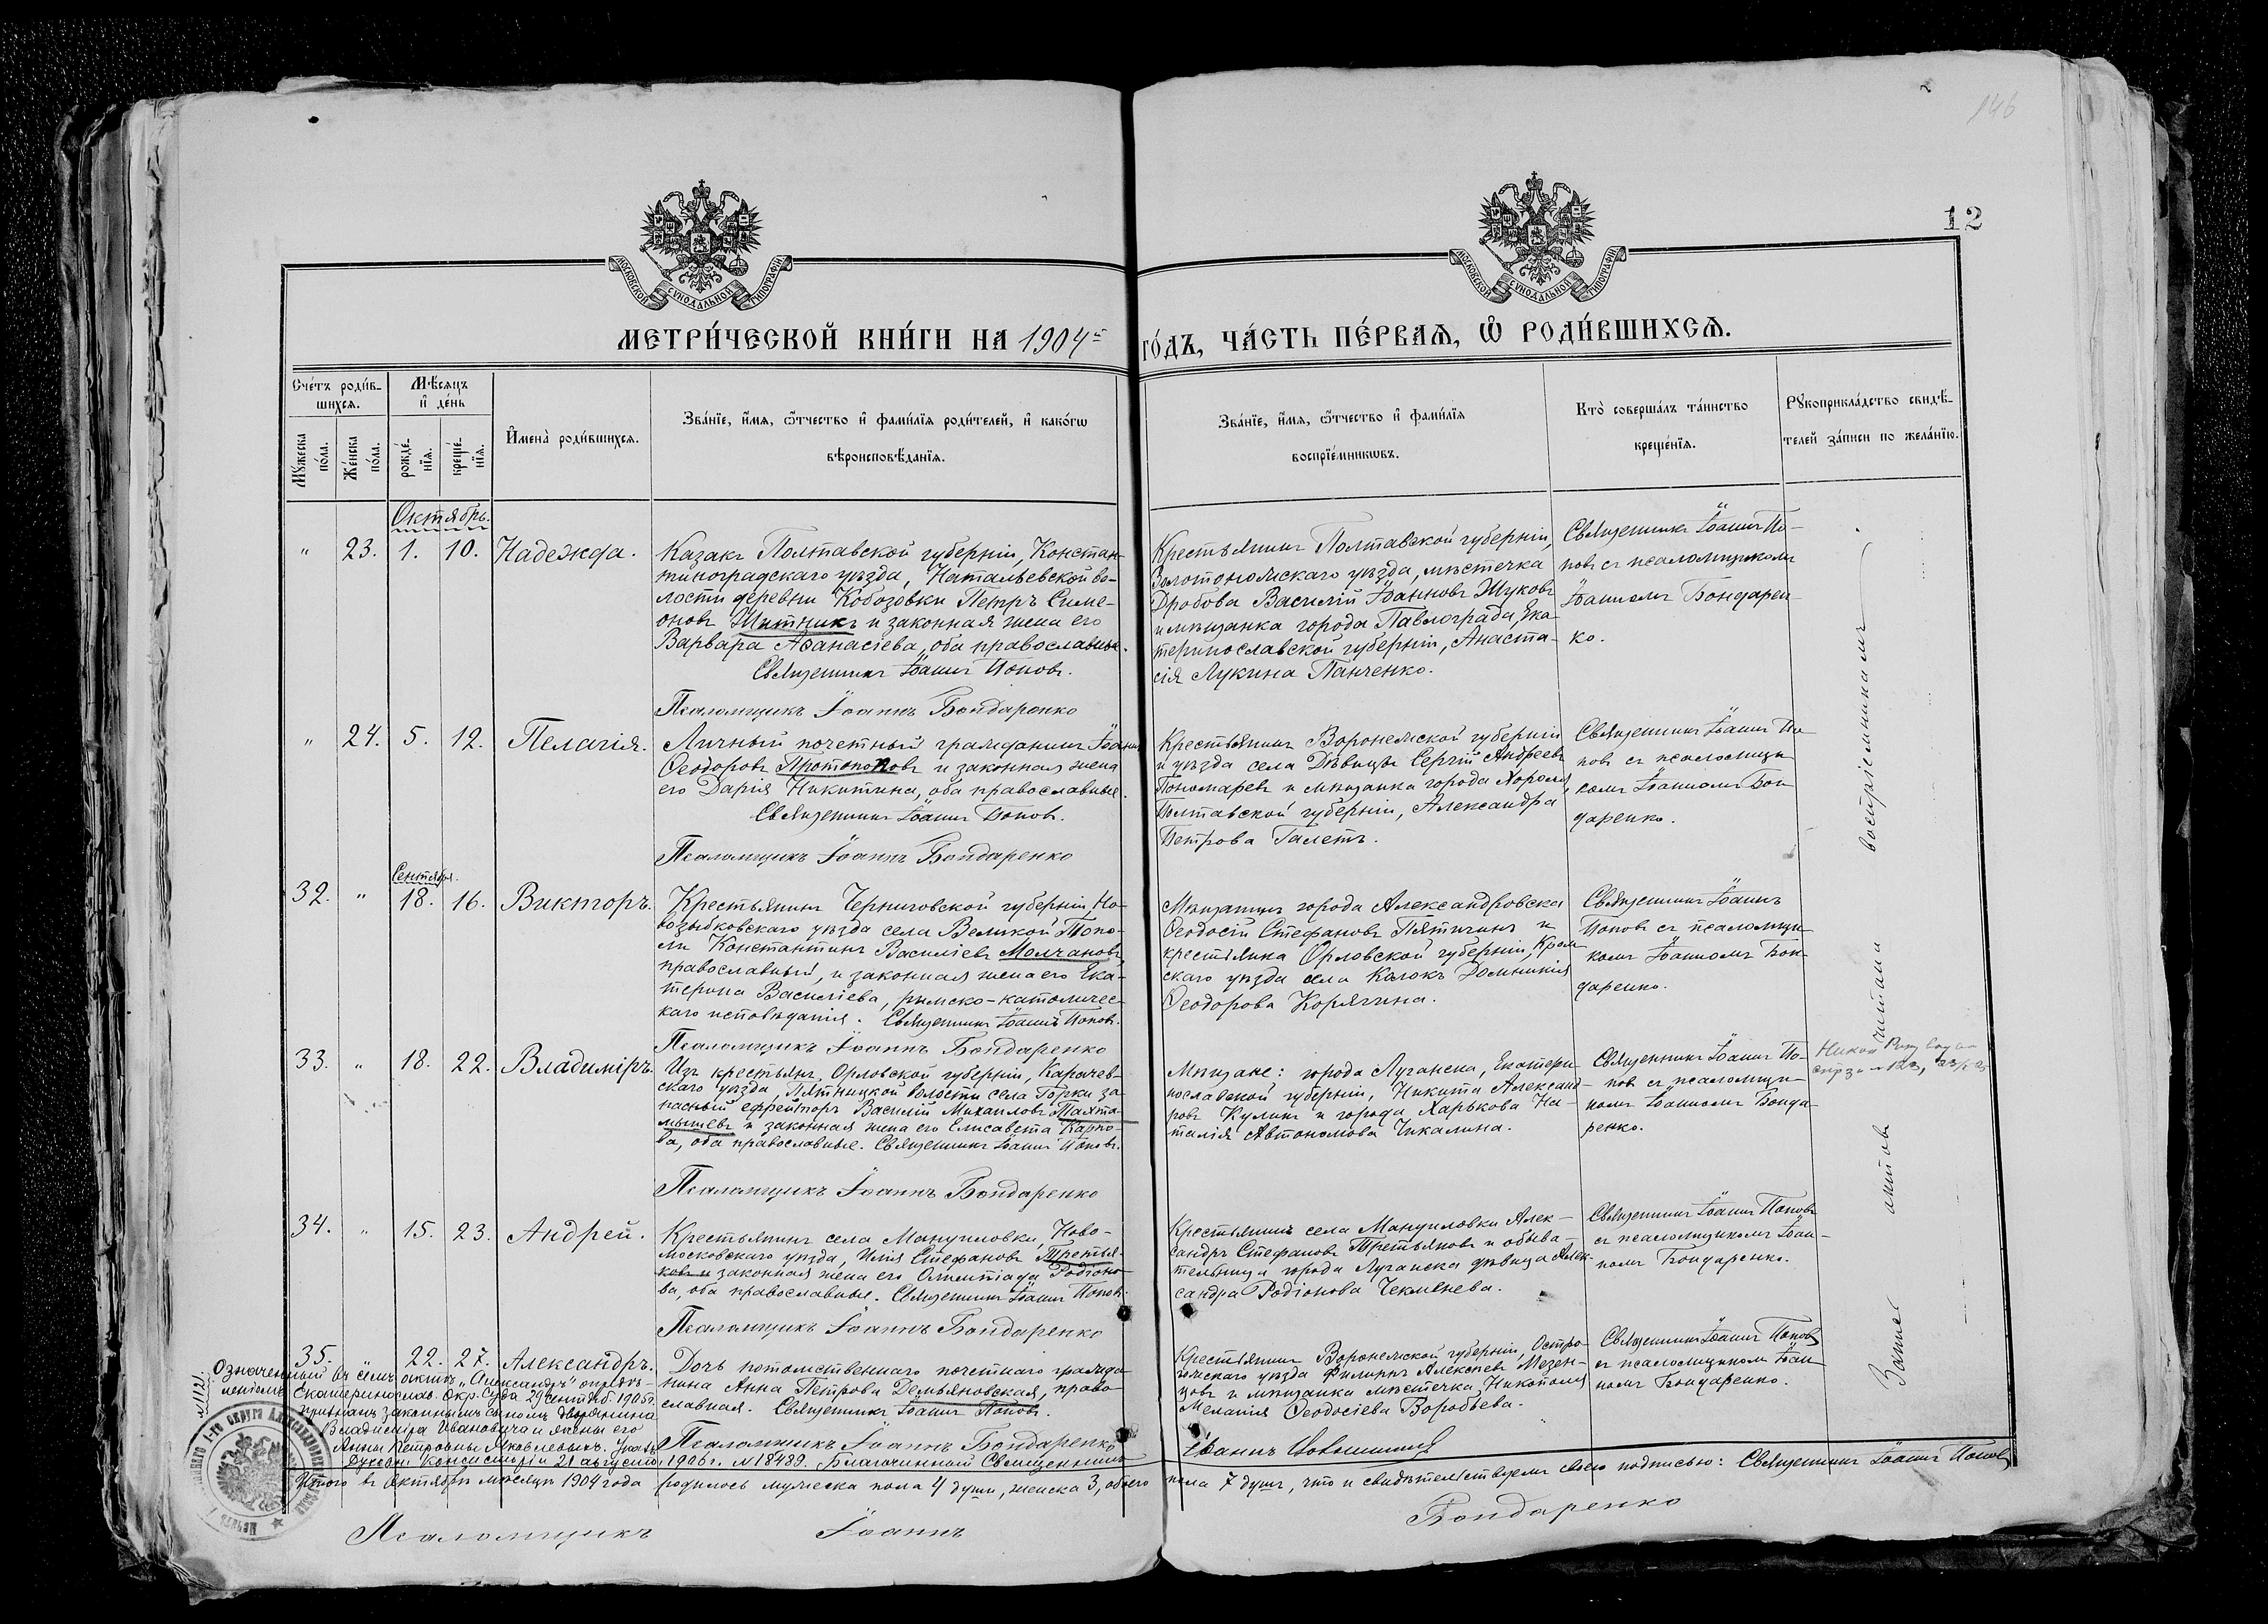 146
12
МОСКОВСКОЙ СѴНОДАЛЬНОЙ ТИПОГРАФІИ
МОСКОВСКОЙ СѴНОДАЛЬНОЙ ТИПОГРАФІИ
МЕТРИ́ЧЕСКОЙ КНИ́ГИ НА 1904й
ГО́ДЪ, ЧА́СТЬ ПЕ́РВАѦ, Ѽ РОДИ́ВШИХСѦ.
Сче́тъ роди́в-
шихсѧ.
Мꙋжеска по́ла.
Же́нска по́ла.
Мѣ́сѧцъ
и҆ де́нь
рожде́-
нїѧ.
креще́-
нїѧ.
И҆мена̀ роди́вшихсѧ.
Зва́нїе, и҆́мѧ, ѻ҆́тчество и҆ фами́лїѧ роди́телей, и҆ како́гѡ
вѣроисповѣ́данїѧ.
Зва́нїе, и҆́мѧ, ѻ҆́тчество и҆ фами́лїѧ
воспрїе́мникѡвъ.
Кто̀ соверша́лъ та́инство
креще́нїѧ.
Рꙋкоприкла́дство свидѣ́-
телей за́писи по жела́нїю.
Октябрь.
" 23. 1. 10. Надежда.
Казакъ Полтавской губерніи, Констан-
тиноградскаго уѣзда, Натальевской во-
лости деревни Кобозовки Петръ Симе-
оновъ Шитникъ и законная жена его
Варвара Аѳанасіева, оба православные.
Священникъ Іоаннъ Поповъ.
Псаломщикъ Іоаннъ Бондаренко
Крестьянинъ Полтавской губерніи,
Золотоношскаго уѣзда, мѣстечка
Дробова Василій Іоанновъ Жуковъ
и мѣщанка города Павлограда, Ека-
теринославской губерніи, Анаста-
сія Лукина Панченко.
Священникъ Іоаннъ По-
повъ съ псаломщикомъ
Іоанномъ Бондарен-
ко.
" 24. 5. 12. Пелагія.
Личный почетный гражданинъ Іоаннъ
Ѳеодоровъ Протопоповъ и законная жена
его Дарія Никитина, оба православные.
Священникъ Іоаннъ Поповъ.
Псаломщикъ Іоаннъ Бондаренко
Крестьянинъ Воронежской губерніи
и уѣзда села Дѣвицы Сергій Андреевъ
Пономаревъ и мѣщанка города Хорола,
Полтавской губерніи, Александра
Петрова Галетъ.
Священникъ Іоаннъ По
повъ съ псаломщи
комъ Іоанномъ Бон
даренко.
Сентября.
32. " 18. 16. Викторъ.
Крестьянинъ Черниговской губерніи, Но-
возыбковскаго уѣзда села Великой Топо-
ли Константинъ Василіевъ Молчановъ,
православный, и законная жена его Ека-
терина Василіева, римско-католичес-
каго исповѣданія. Священникъ Іоаннъ Поповъ.
Псаломщикъ Іоаннъ Бондаренко
Мѣщанинъ города Александровска
Ѳеодосій Стефановъ Пятичинъ и
крестьянка Орловской губерніи, Кром-
скаго уѣзда села Колокъ Домникія
Ѳеодорова Корягина.
Священникъ Іоаннъ
Поповъ съ псаломщи-
комъ Іоанномъ Бон-
даренко.
33. " 18. 22. Владиміръ.
Изъ крестьянъ, Орловской губерніи, Карачев-
скаго уѣзда, Пятницкой волости села Горки за-
пасный ефрейторъ Василій Михаиловъ Тахта-
мышевъ и законная жена его Елисавета Карпо-
ва, оба православные. Священникъ Іоаннъ Поповъ.
Псаломщикъ Іоаннъ Бондаренко
Мѣщане: города Луганска, Екатери-
нославской губерніи, Никита Александ-
ровъ Кулинъ и города Харькова На-
талія Автономова Чикалина.
Священникъ Іоаннъ По-
повъ съ псаломщи-
комъ Іоанномъ Бонда-
ренко.
34. " 15. 23. Андрей.
Крестьянинъ села Мануиловки, Ново-
московскаго уѣзда, Илія Стефановъ Третья-
ковъ и законная жена его Олимпіада Родіоно-
ва, оба православные. Священникъ Іоаннъ Поповъ.
Псаломщикъ Іоаннъ Бондаренко
Крестьянинъ села Мануиловки Алек-
сандръ Стефановъ Третьяковъ и обыва-
тельница города Луганска дѣвица Алек-
сандра Родіонова Чекменева.
Священникъ Іоаннъ Поповъ
съ псаломщикомъ Іоан-
номъ Бондаренко.
35. 22. 27. Александръ.
Дочь потомственнаго почетнаго гражда-
нина Анна Петрова Демьяновская, право-
славная. Священникъ Іоаннъ Поповъ.
Псаломщикъ Іоаннъ Бондаренко
Крестьянинъ Воронежской губерніи, Остро-
гожскаго уѣзда Филиппъ Алексѣевъ Мезен-
цовъ и мѣщанка мѣстечка Никополя
Меланія Ѳеодосіева Воробьева.
Священникъ Іоаннъ Поповъ
съ псаломщикомъ Іоан-
номъ Бондаренко.
№1121.
Означенный въ семъ актѣ „Александръ" опредѣ-
леніемъ Екатеринослав. Окр. Суда 29 сентяб. 1905 г.
признанъ законнымъ сыномъ дворянина
Владиміра Ивановича и жены его
Анны Петровны Яковлевыхъ. Указъ
Духовн. Консисторіи 21 августа 1906 г. №18489. Благочинный Священникъ
Итого въ Октябрѣ мѣсяцѣ 1904 года родилось мужеска пола 4 души, женска 3, обоего
пола 7 душъ, что и свидѣтельствуемъ своею подписью: Священникъ Іоаннъ Поповъ
Псаломщикъ Іоаннъ Бондаренко
актовъ читана воспріемникамъ